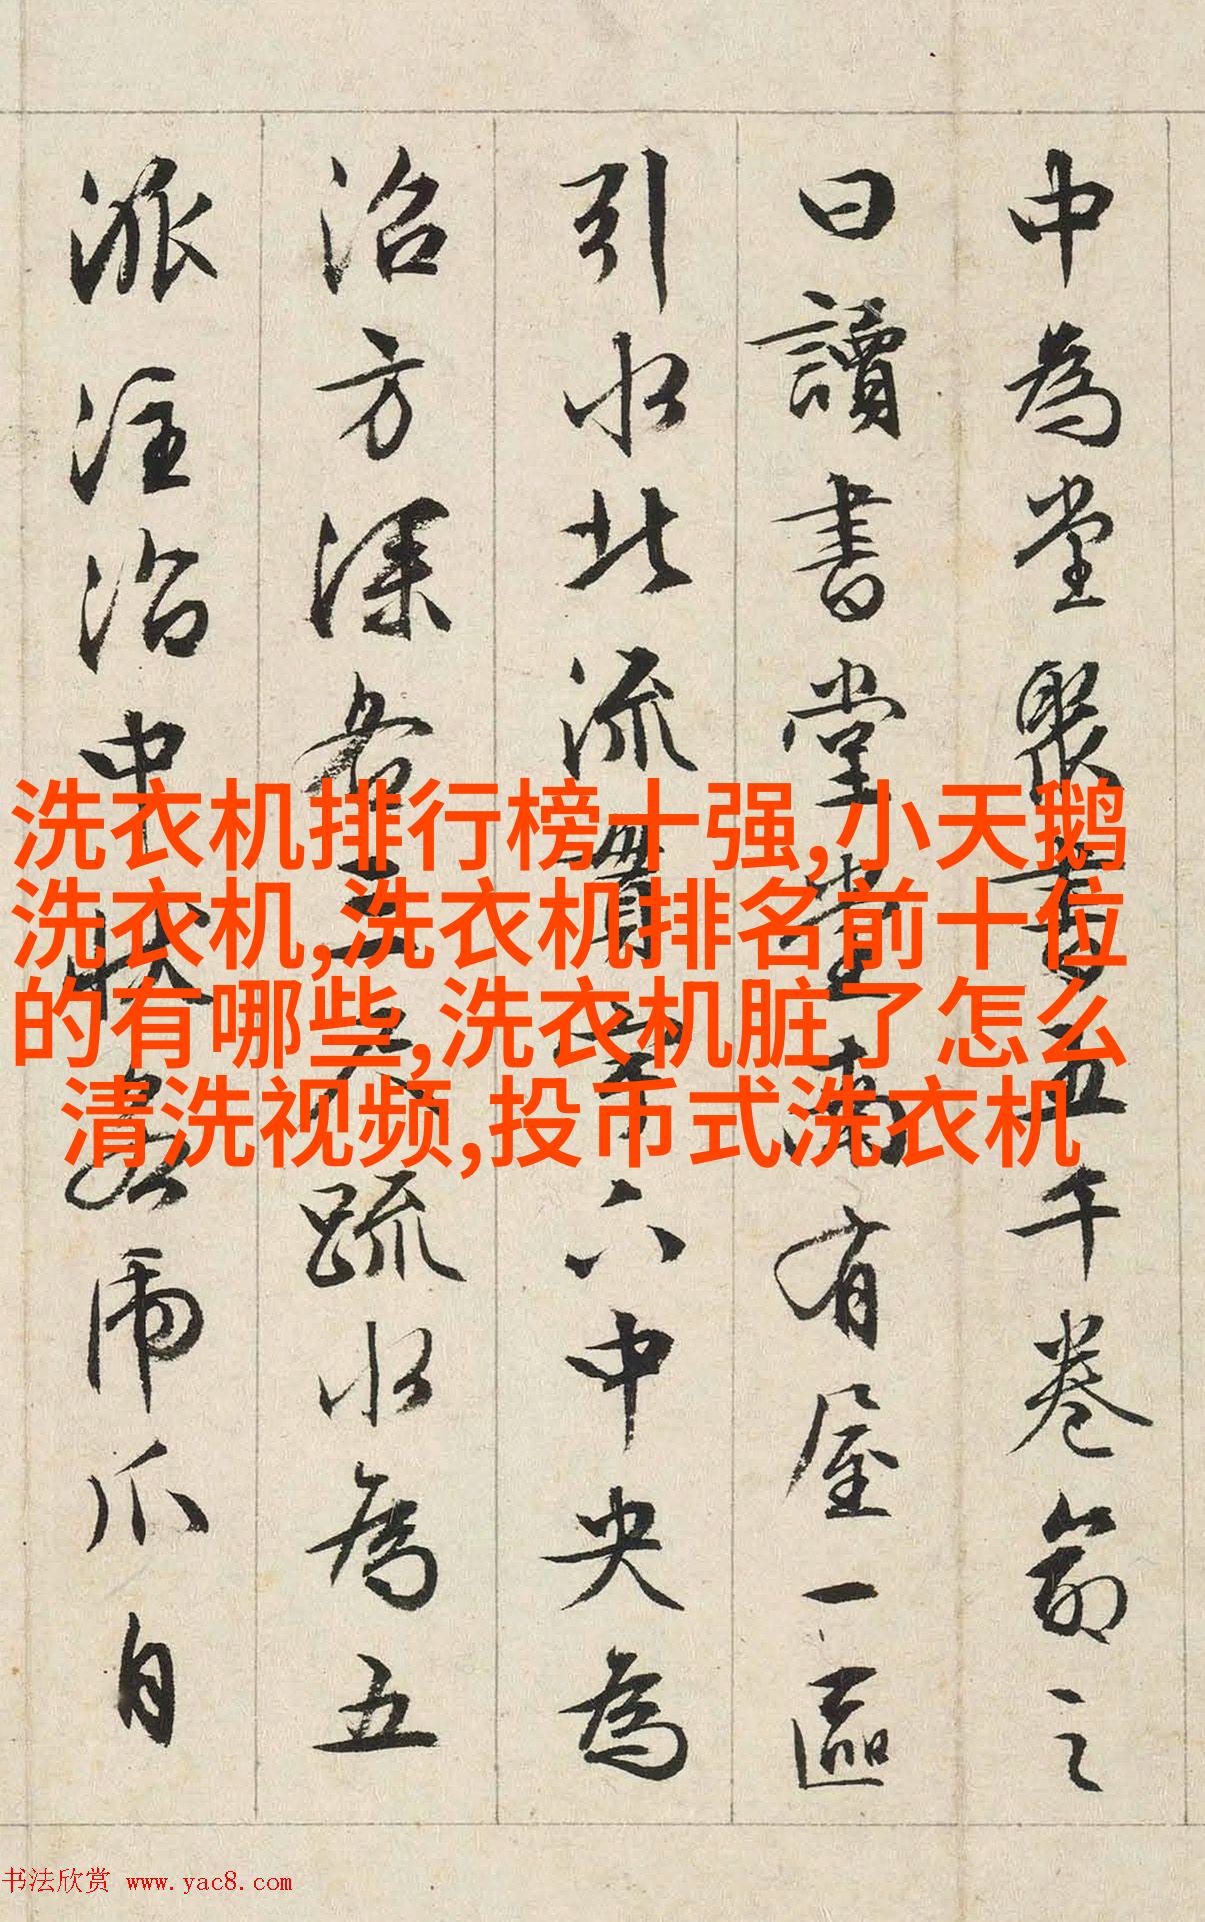 中為堂聚書五千卷命之
曰讀書堂堂南有屋一區
引水北流貫宇下中央為
沼方深各三尺疏水為五
派注沼中狀若虎爪自
洗衣机排行榜十强,小天鹅
洗衣机,洗衣机排名前十位
的有哪些,洗衣机脏了怎么
清洗视频,投币式洗衣机
书法欣赏 www.yac8.com